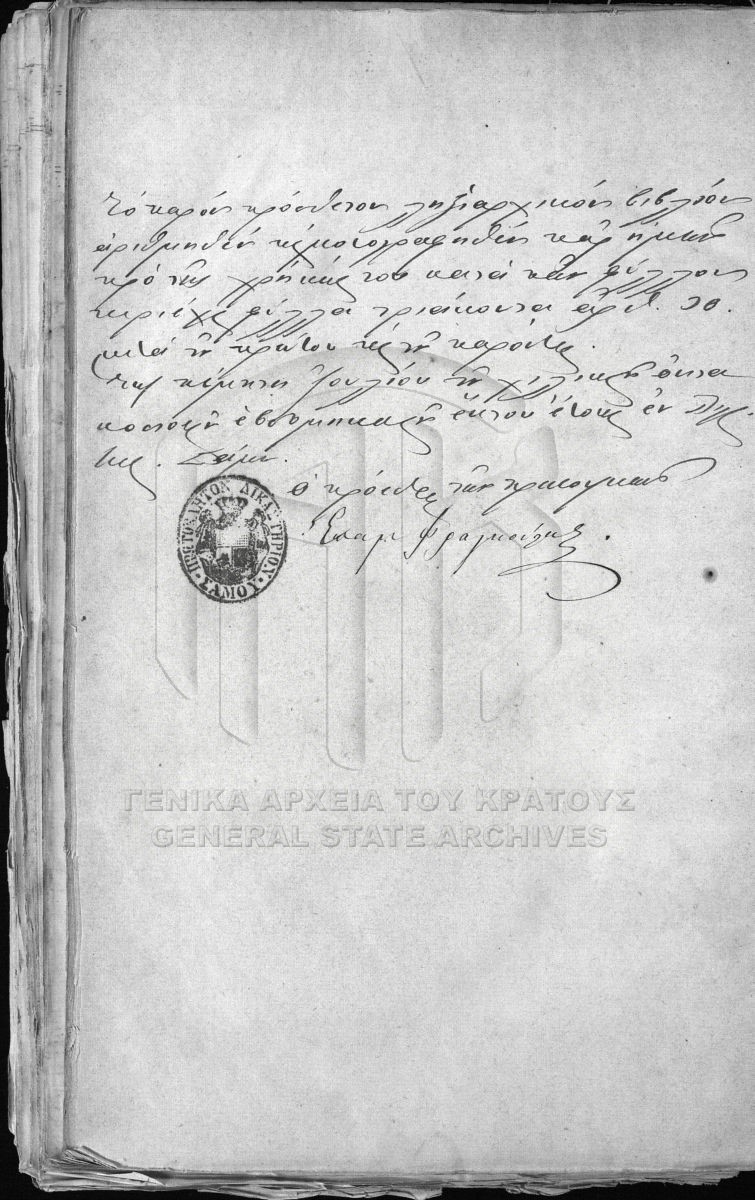 Τὸ παρὸν πρόσθετον ληξιαρχικὸν βιβλίον
ἀριθμηθὲν καὶ μονογραφηθὲν παρ' ἡμῶν
πρὸ τῆς χρήσεώς του κατὰ πᾶν φύλλον
περιέχει φύλλα τριάκοντα ἀριθ. 30.
μετὰ τοῦ πρώτου καὶ τῆς παρούσης.
Τὴν πέμπτην Ἰουλίου τοῦ χιλιοστοῦ ὀκτα
κοσιοστοῦ ἑβδομηκοστοῦ ἕκτου ἔτους ἐν
Σάμου.
Ὁ πρόεδρος τῶν πρωτοδικῶν
Ἐπαμ
ΠΡΩΤΟΒΑΘΜΙΟΝ ΔΙΚΑΣΤΗΡΙΟΝ
ΣΑΜΟΥ
ΓΕΝΙΚΑ ΑΡΧΕΙΑ ΤΟΥ ΚΡΑΤΟΥΣ
GENERAL STATE ARCHIVES